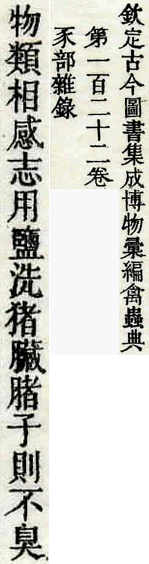 欽定古今圖書集成博物彙編禽蟲典
第一百二十二卷
豕部雜錄
物類相感志用鹽洗猪臟腤子則不臭